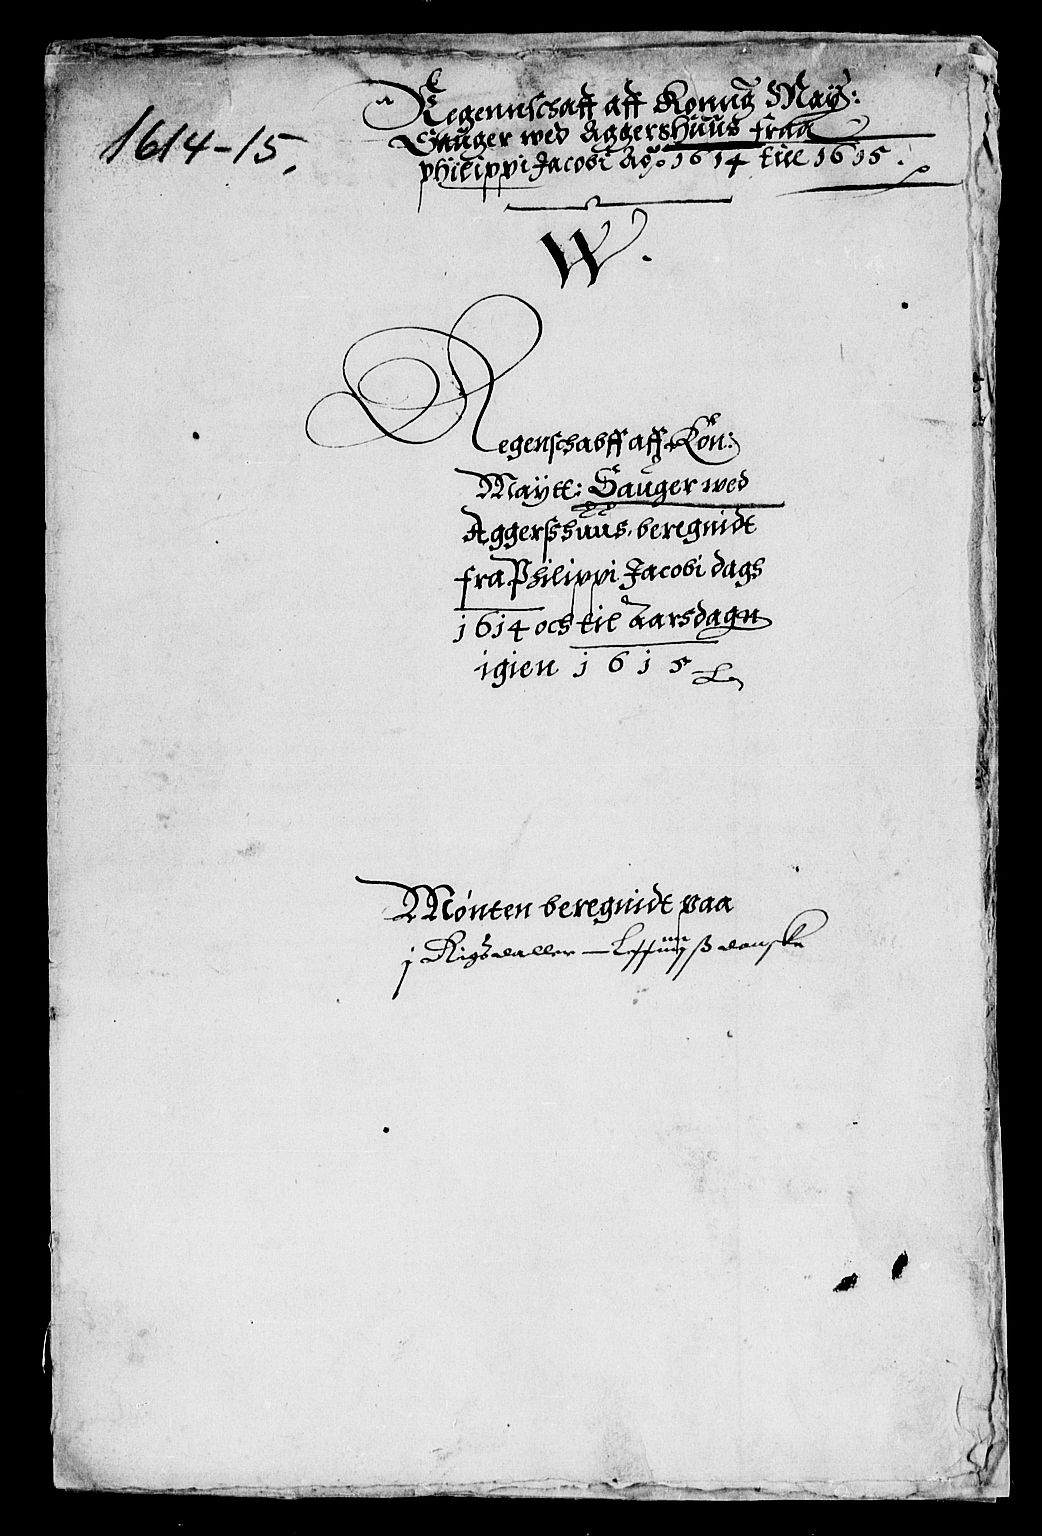 1614-15.
Regennschaff aff Konng May:
Sauger wed Aggershuus fraa
philippi Jacobi Aō. 1614 till 1615.
W.
Regenschabff aff Kön:
Maytt: Sauger wed
Aggerßhuus. beregnidt
fra Philippi Jacobi dags
1614 och til Aarsdagn
igien 1615
Mønten beregnidt paa
j Rigsdaller — ß danske